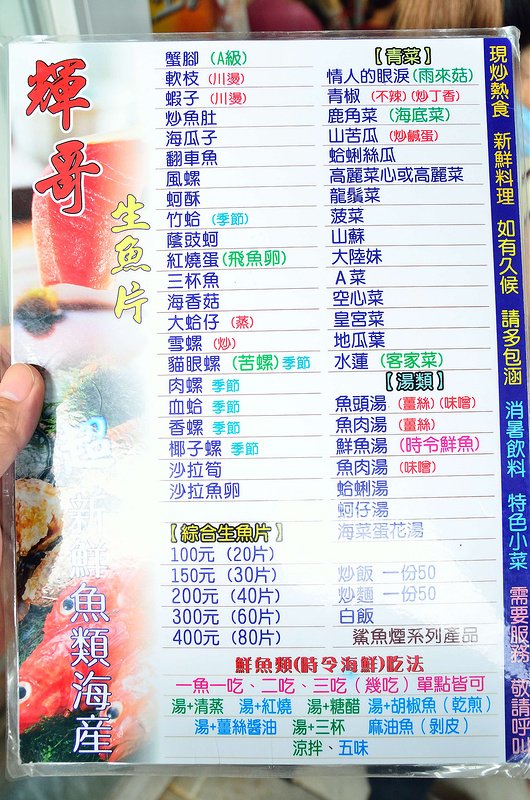 輝哥
生魚片
新鮮魚類海産
蟹腳 (A級)
軟枝 (川燙)
蝦子 (川燙)
炒魚肚
海瓜子
翻車魚
風螺
蚵酥
竹蛤 (季節)
蔭豉蚵
紅燒蛋 (飛魚卵)
三杯魚
海香菇
大蛤仔 (蒸)
雪螺 (炒)
貓眼螺 (苦螺) 季節
肉螺 季節
血蛤 季節
香螺 季節
椰子螺 季節
沙拉筍
沙拉魚卵
【綜合生魚片】
100元 (20片)
150元 (30片)
200元 (40片)
300元 (60片)
400元 (80片)
【青菜】
情人的眼淚(雨來菇)
青椒 (不辣)(炒丁香)
鹿角菜 (海底菜)
山苦瓜 (炒鹹蛋)
蛤蜊絲瓜
高麗菜心或高麗菜
龍鬚菜
菠菜
山蘇
大陸妹
A菜
空心菜
皇宮菜
地瓜葉
水蓮 (客家菜)
【湯類】
魚頭湯 (薑絲)(味噌)
魚肉湯 (薑絲)
鮮魚湯 (時令鮮魚)
魚肉湯 (味噌)
蛤蜊湯
蚵仔湯
海菜蛋花湯
炒飯 一份50
炒麵 一份50
白飯
鯊魚煙系列產品
鮮魚類(時令海鮮)吃法
一魚一吃、二吃、三吃 (幾吃) 單點皆可
湯+清蒸 湯+紅燒 湯+糖醋 湯+胡椒魚 (乾煎)
湯+薑絲醬油 湯+三杯 麻油魚 (剝皮)
涼拌、五味
現炒熱食 新鮮料理 如有久候 請多包涵 消暑飲料 特色小菜 需要服務 敬請呼叫